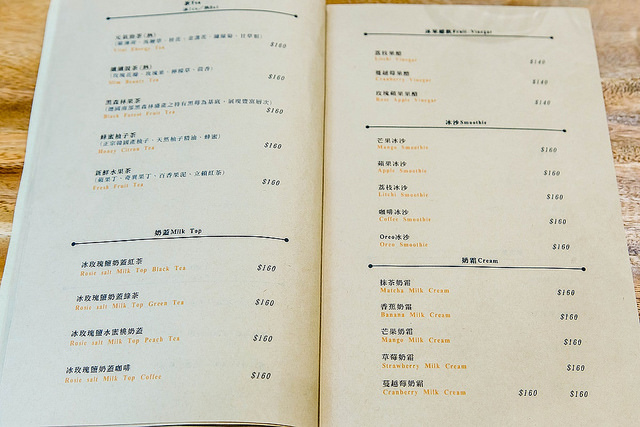 茶Tea
冰Ice/熱Hot
元氣能茶(熱)
$160
Vital Energy Tea
纖孅說茶(熱)
(玫瑰花瓣、玫瑰果、檸檬草、茴香)
$160
Slim Beauty Tea
黑森林果茶
$160
Black Forest Fruit Tea
蜂蜜柚子茶
(正宗韓國產柚子、天然柚子精油、蜂蜜)
$160
Honey Citron Tea
新鮮水果茶
(蘋果丁、奇異果丁、百香果泥、立頓紅茶)
$160
Fresh Fruit Tea
奶蓋Milk Top
冰玫瑰鹽奶蓋紅茶
Rosie salt Milk Top Black Tea
$160
冰玫瑰鹽奶蓋綠茶
Rosie salt Milk Top Green Tea
$160
冰玫瑰鹽水蜜桃奶蓋
Rosie salt Milk Top Peach Tea
$160
冰玫瑰鹽奶蓋咖啡
Rosie salt Milk Top Coffee
$160
Fruit Vinegar
荔枝果醋
Litchi Vinegar
$140
蔓越莓果醋
Cranberry Vinegar
$140
玫瑰蘋果果醋
Rose Apple Vinegar
$140
冰沙Smoothie
芒果冰沙
Mango Smoothie
$160
蘋果冰沙
Apple Smoothie
$160
荔枝冰沙
Litchi Smoothie
$160
咖啡冰沙
Coffee Smoothie
$160
Oreo冰沙
Oreo Smoothie
$160
奶霜Cream
抹茶奶霜
Matcha Milk Cream
$160
香蕉奶霜
Banana Milk Cream
$160
芒果奶霜
Mango Milk Cream
$160
草莓奶霜
Strawberry Milk Cream
$160
蔓越莓奶霜
Cranberry Milk Cream
$160 $160